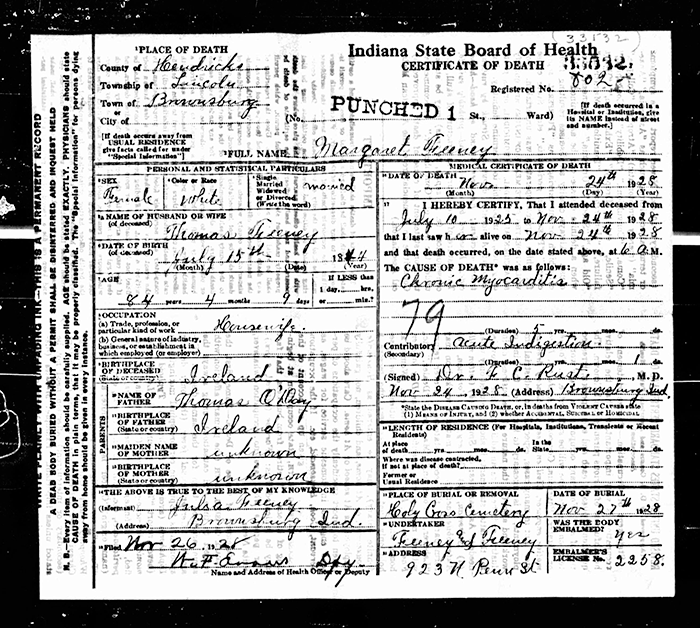 (33132)
PLACE OF DEATH
County of Hendricks
Township of Lincoln
Town of Brownsburg
or
City of
(No.
PUNCHED 1
St.,
Ward)
[If death occurs away from
USUAL RESIDENCE
give facts called for under
"Special Information"]
Indiana State Board of Health
CERTIFICATE OF DEATH
33132
Registered No. 802
[If death occurred in a
Hospital or Institution, give
its NAME instead of street
and number.]
FULL NAME Margaret Feeney
PERSONAL AND STATISTICAL PARTICULARS
SEX
Female
Color or Race
White
Single
Married
Widowed
or Divorced
(Write the word)
married
NAME OF HUSBAND OR WIFE
(of deceased)
Thomas Feeney
DATE OF BIRTH
(of deceased)
July 15th 1844
(Month) (Date) (Year)
AGE
84 years 4 months 9 days
If LESS than
1 day, hrs.
or min.?
OCCUPATION
(a) Trade, profession, or
particular kind of work
Housewife
(b) General nature of industry,
business, or establishment in
which employed (or employer)
BIRTHPLACE
OF DECEASED
(State or country)
Ireland
PARENTS
NAME OF
FATHER
Thomas O'Day
BIRTHPLACE
OF FATHER
(State or country)
Ireland
MAIDEN NAME
OF MOTHER
unknown
BIRTHPLACE
OF MOTHER
(State or country)
unknown
THE ABOVE IS TRUE TO THE BEST OF MY KNOWLEDGE
(Informant) Julia Feeney
(Address) Brownsburg Ind.
Filed Nov 26, 1928
Wm F. Evans Dpy
Name and Address of Health Officer or Deputy
MEDICAL CERTIFICATE OF DEATH
DATE OF DEATH
Nov 24th 1928
(Month) (Day) (Year)
I HEREBY CERTIFY, That I attended deceased from
July 10 1925 to Nov 24th 1928
that I last saw her alive on Nov 24th 1928
and that death occurred, on the date stated above, at 6 A.M.
The CAUSE OF DEATH* was as follows:
Chronic Myocarditis
79
(Duration) 5 yrs. mos. ds.
Contributory Acute Indigestion
(Secondary)
(Duration) yrs. mos. 1 ds.
(Signed) Dr. F. C. Rust M. D.
Nov 24, 1928 (Address) Brownsburg Ind.
*State the DISEASE CAUSING DEATH, or, in deaths from VIOLENT CAUSES state
(1) MEANS OF INJURY, and (2) whether ACCIDENTAL, SUICIDAL or HOMICIDAL
LENGTH OF RESIDENCE (For Hospitals, Institutions, Transients or Recent
Residents)
At place
of death yrs. mos. ds.
In the
State yrs. mos. ds.
Where was disease contracted,
If not at place of death?
Former or
Usual Residence
PLACE OF BURIAL OR REMOVAL
Holy Cross Cemetery
DATE OF BURIAL
Nov 27th 1928
UNDERTAKER
Feeney & Feeney
WAS THE BODY
EMBALMED? Yes
ADDRESS
923 N Penn St
EMBALMER'S
LICENSE No. 2258.
WRITE PLAINLY WITH UNFADING INK—THIS IS A PERMANENT RECORD
A DEAD BODY BURIED WITHOUT A PERMIT SHALL BE DISINTERRED AND INQUEST HELD
N. B.—Every item of information should be carefully supplied. AGE should be stated EXACTLY. PHYSICIANS should state
CAUSE OF DEATH in plain terms, that it may be properly classified. The "Special Information" for persons dying
away from home should be given in every instance.